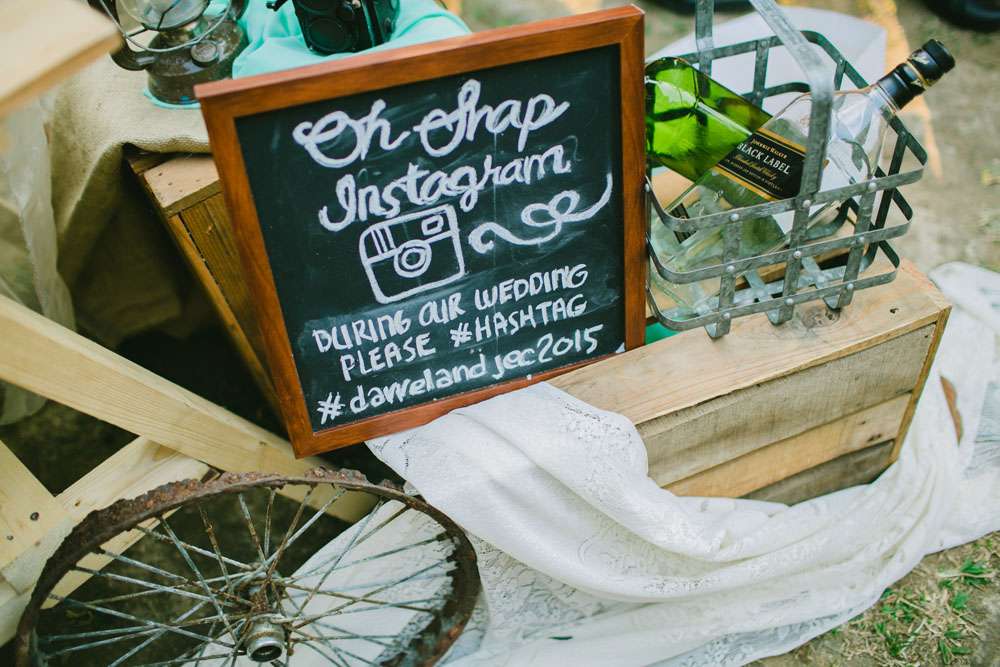 Oh Snap
Instagram
DURING OUR WEDDING
PLEASE #HASHTAG
#davvelandjec2015
BLACK LABEL